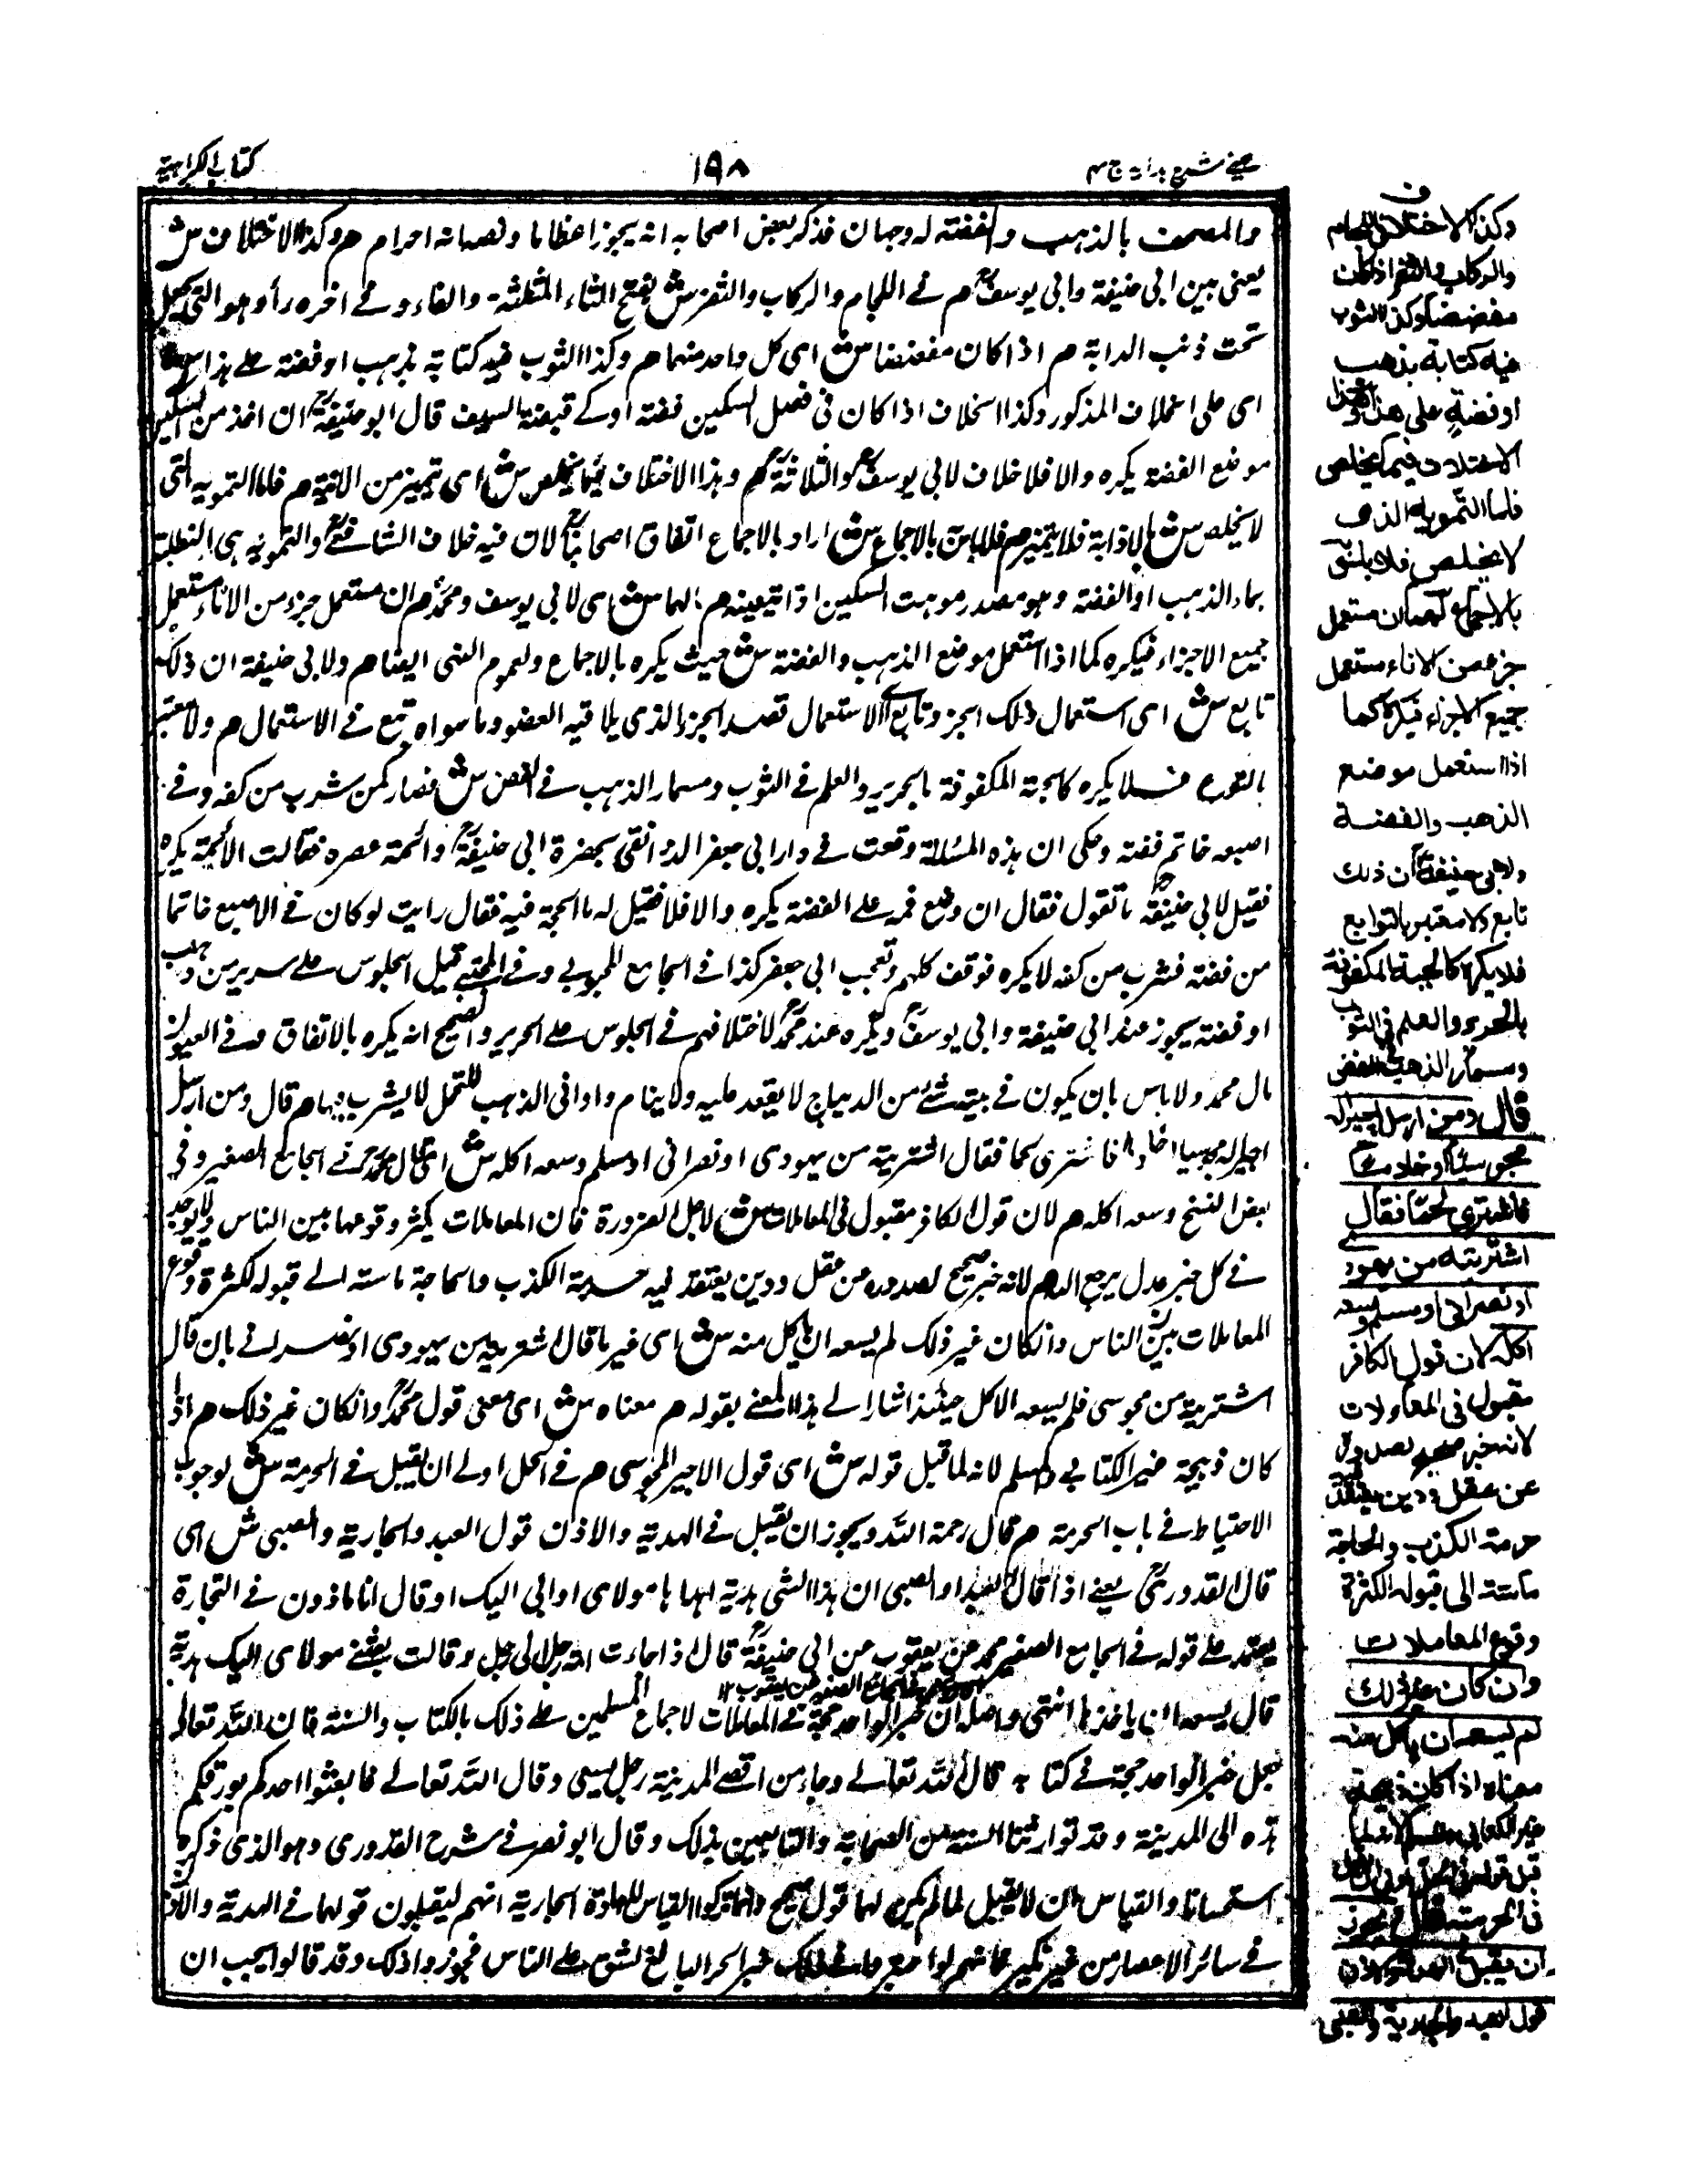 عيني شرح هداية ج ٤
١٩٨
كتاب الكراهية
والمصحف بالذهب والفضة له وجهان فذكر بعض اصحابه انه يجوز اعظاما ونصهانه احرام هم وكذا الاختلاف ش
يعنى بين ابي حنيفة وابي يوسف م في اللجام والركاب والثفر ش بفتح الثاء المثلثة والفاء وفي اخره راء وهو التي يجعل
تحت ذنب الدابة م اذا كان مفضضا ش اى كل واحد منهما م وكذا الثوب فيه كتابة بذهب او فضة على هذا ش
اى على الخلاف المذكور وكذا الخلاف اذا كان في فصل السكين فضة او في قبضة السيف قال ابو حنيفة ان اخذ من السكين
موضع الفضة يكره والا فلا خلاف لابي يوسف والثلاثة م وهذا الاختلاف فيما يخلص ش اى يتميز من الانية م فاما التمويه التى
لا يخلص ش بالاذابة فلا يتميز م فلا باس بالاجماع ش اراد بالاجماع اتفاق اصحابنا لان فيه خلاف الشافعي والتمويه هي التطلية
بماء الذهب او الفضة وهو مصدر موهت السكين اذا م لهما ش اى لابي يوسف ومحمد م ان مستعمل جزء من الاناء مستعمل
جميع الاجزاء فيكره كما اذا استعمل موضع الذهب والفضة ش حيث يكره بالاجماع ولعموم النهى ايضا م ولابي حنيفة ان ذلك
تابع ش اى استعمال ذلك الجزء تابع الاستعمال قصد الجزء الذى يلاقيه العضو وما سواه تبع في الاستعمال م ولا معتبر
بالتوابع فلا يكره كالجبة المكفوفة بالحرير والعلم في الثوب ومسمار الذهب في الفص ش فصار كمن شرب من كفه وفي
اصبعه خاتم فضة وحكى ان هذه المسئلة وقعت في دار ابي جعفر الدوانقى بحضرة ابي حنيفة وائمة عصره فقالت الائمة يكره
فقيل لابي حنيفة ما تقول فقال ان وضع فمه على الفضة يكره والا فلا فقيل له ما الحجة فيه فقال رايت لو كان في الاصبع خاتما
من فضة فشرب من كفه لا يكره فوقف كلهم وتعجب ابي جعفر كذا في الجامع المحبوبي وفي المجتبى قيل الجلوس على سرير من ذهب
او فضة يجوز عند ابي حنيفة وابي يوسف ويكره عند محمد لاختلافهم في الجلوس على الحرير والصحيح انه يكره بالاتفاق وفي العيون
قال محمد ولا باس بان يكون في بيته شئ من الديباج لا يقعد عليه ولا ينام واوانى الذهب للتجمل لا يشرب فيها م قال ومن ارسل
اجيرا له مجوسيا او خادما فاشترى لحما فقال اشتريته من يهودى او نصرانى او مسلم وسعه اكله ش اى قال محمد في الجامع الصغير وفي
بعض النسخ وسعه اكله م لان قول الكافر مقبول في المعاملات ش لاجل الضرورة فان المعاملات يكثر وقوعها بين الناس ولا يوجد
في كل خبر عدل يرجع اليه م لانه خبر صحيح لصدوره من عقل ودين يعتقد فيه حرمة الكذب والحاجة ماسة الى قبوله لكثرة وقوع
المعاملات بين الناس وان كان غير ذلك لم يسعه ان ياكل منه ش اى غير ما قال اشتريته من يهودى او نصرانى بان قال
اشتريته من مجوسى فلم يسعه الاكل حينئذ اشار الى هذا المعنى بقوله م معناه ش اى معنى قول محمد وان كان غير ذلك م اذا
كان ذبيحة غير الكتابي والمسلم لانه لما قبل قوله ش اى قول الاجير المجوسى م في الحل اولى ان يقبل في الحرمة ش لوجوب
الاحتياط في باب الحرمة م قال رحمة الله ويجوز ان يقبل في الهدية والاذن قول العبد والجارية والصبي ش اى
قال القدوري يعنى اذا قال العبد او الصبى ان هذا الشئ هدية اهداها مولاى او ابي اليك او قال انا ماذون في التجارة
يعتمد على قوله في الجامع الصغير محمد عن يعقوب عن ابي حنيفة قال اذا جاءت رجل وقالت بعثنى مولاى اليك هدية
قال يسعه ان ياخذها انتهى واصله ان خبر الواحد حجة في المعاملات لاجماع المسلمين على ذلك بالكتاب والسنة فان الله تعالى
جعل خبر الواحد حجة في كتابه قال الله تعالى وجاء من اقصى المدينة رجل يسعى وقال الله تعالى فابعثوا احدكم بورقكم
هذه الى المدينة وقد توارثنا السنة من الصحابة والتابعين بذلك وقال ابو نصر في شرح القدورى وهو الذى ذكره
استحسانا والقياس ان لا يقبل لما لم يكن لهما قول صحيح وانما تركوا القياس للعادة الجارية انهم يقبلون قولهما في الهدية والاذن
في سائر الاعصار من غير نكير في ذلك خبر الحر البالغ لشق على الناس فجوزوا ذلك وقد قالوا يجب ان
وكذا الاختلاف في اللجام
والركاب والثفر اذا كان
مفضضا وكذا الثوب
فيه كتابة بذهب
او فضة على هذا وهذا
الاختلاف فيما يخلص
فاما التمويه الذى
لا يخلص فلا باس به
بالاجماع لهما ان مستعمل
جزء من الاناء مستعمل
جميع الاجزاء فيكره كما
اذا استعمل موضع
الذهب والفضة
ولابي حنيفة ان ذلك
تابع ولا معتبر بالتوابع
فلا يكره كالجبة المكفوفة
بالحرير والعلم في الثوب
ومسمار الذهب في الفص
قال ومن ارسل اجيرا له
مجوسيا او خادما
فاشترى لحما فقال
اشتريته من يهودى
او نصرانى او مسلم وسعه
اكله لان قول الكافر
مقبول في المعاملات
لانه خبر صحيح لصدوره
عن عقل ودين يعتقد
حرمة الكذب والحاجة
ماسة الى قبوله لكثرة
وقوع المعاملات
وان كان غير ذلك
لم يسعه ان ياكل منه
معناه اذا كان ذبيحة
غير الكتابي والمسلم لانه لما
قبل قوله في الحل اولى ان يقبل
في الحرمة قال ويجوز
ان يقبل في الهدية والاذن
قول العبد والجارية والصبى